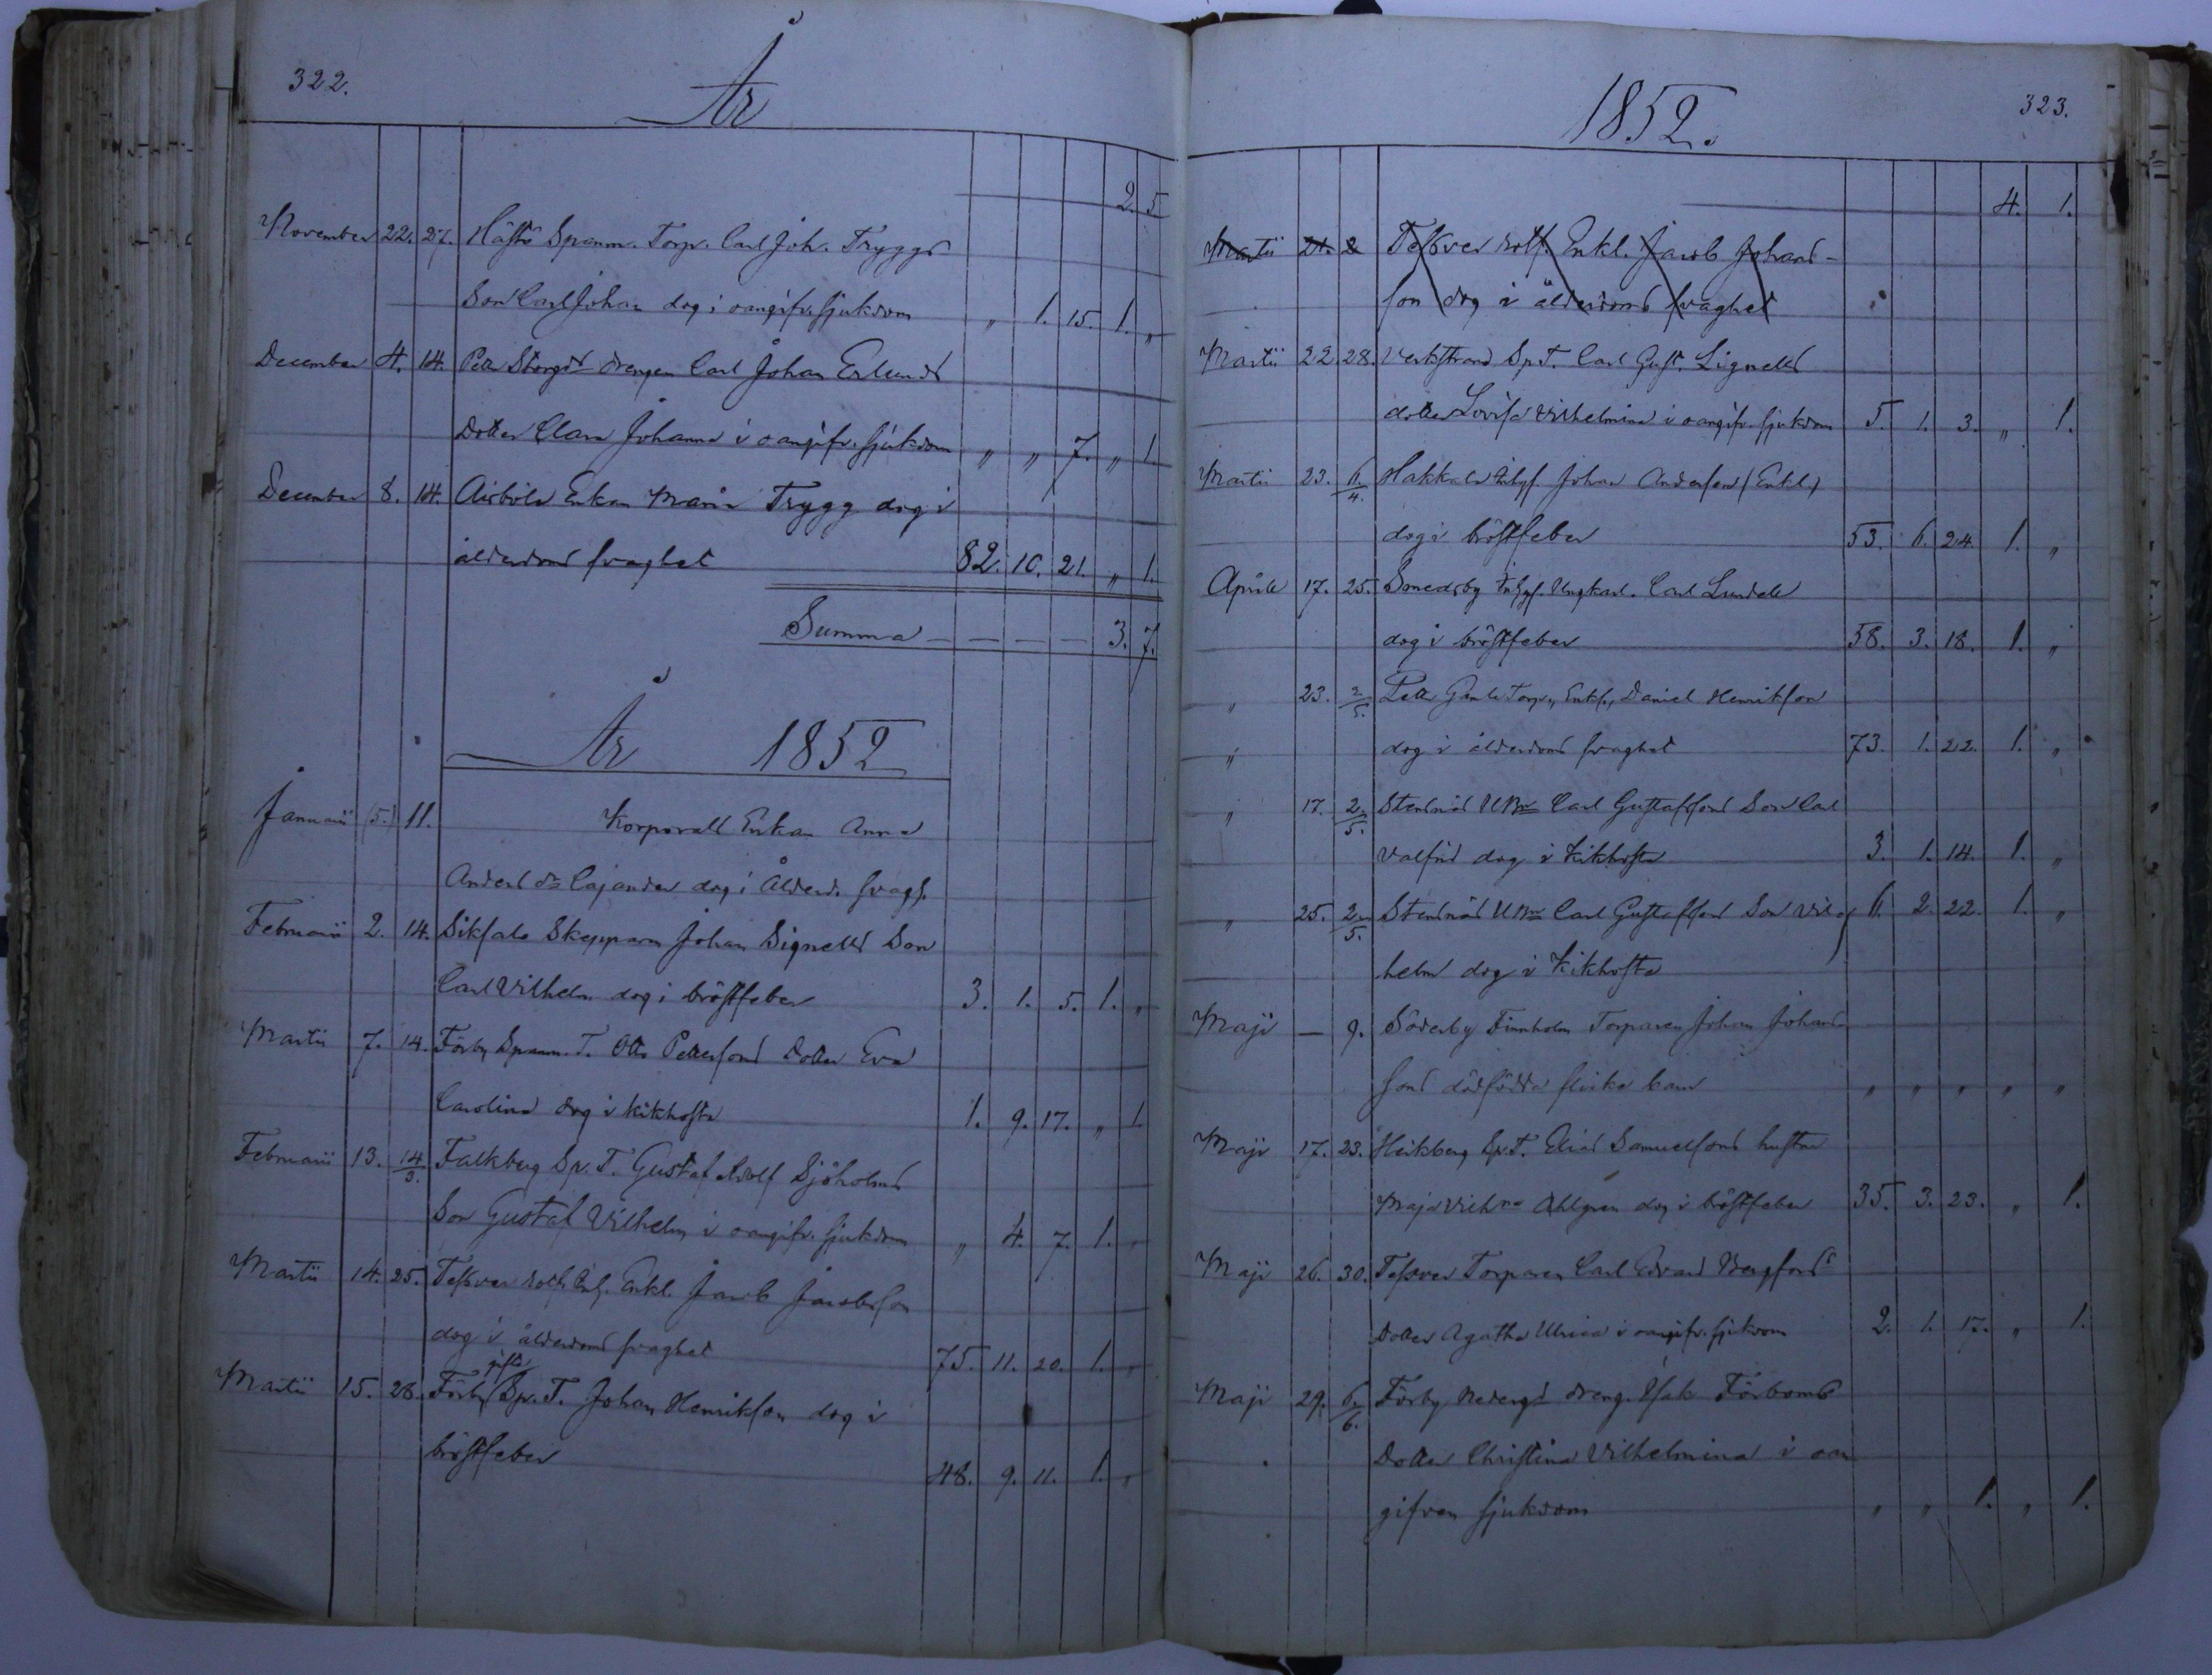 322.
År
2. 5
November 22. 27. Hästö Spanm. Torp. Carl Joh. Tryggs
Son Carl Johan dog i oangifv. sjukdom „ 1. 15. 1. „
December 4. 14. Petter Storgds drengen Carl Johan Erlunds
Dotter Clara Johanna i oangifv. sjukdom „ „ 7. „ 1.
December 8. 14. Airböle Enkan Maria Trygg dog i
ålderdoms svaghet 82. 10. 21. „ 1.
Summa — — — — 3. 7.
År 1852
Januarii (5.) 11. Korporall Enkan Anna
Anders dr Cajander dog i Ålderd. svagh.
Februarii 2. 14. Siksalo Skepparn Johan Signells Son
Carl Vilhelm dog i bröstfeber 3. 1. 5. 1. „
Martii 7. 14. Förby Spanm. T. Otto Pettersons Dotter Eva
Carolina dog i kikhosta 1. 9. 17. „ 1.
Februarii 13. 14/3. Falkberg Sp. T. Gustaf Adolf Sjöholms
Son Gustaf Vilhelm i oangifv. sjukdom „ 4. 7. 1. „
Martii 14. 25. Tesvar Enkl. Jacob Jacobsson
dog i ålderdoms svaghet 75. 11. 20. 1. „
gifte
Martii 15. 28. Förby Sp. T. Johan Henrikson dog i
bröstfeber 48. 9. 11. 1. „
1852.
323.
4. 1.
Martii 21. 2 Tesvar rotf. Enkl. Jacob Johans-
son dog i ålderdoms svaghet
Martii 22. 28. Verkstrand Sp. T. Carl Gust. Lignells
dotter Lovisa Vilhelmina i oangifv. sjukdom 5. 1. 3. „ 1.
Martii 23. 11/4. Hakkala Inhys. Johan Anderson (Enkl.)
dog i bröstfeber 53. 6. 24. 1. „
Aprill 17. 25. Smedsby Inhys. Ungkarl. Carl Lundell
dog i bröstfeber 58. 3. 18. 1. „
„ 23. 2/5. Petter Gamla Torp., Enkl., Daniel Henrikson
„ dog i ålderdoms svaghet 73. 1. 22. 1. „
„ 17. 2/5. Stensnäs Carl Gustafssons Son Carl
Valfrid dog i Kikhosta 3. 1. 14. 1. „
„ 25. 2/5. Stensnäs Carl Gustafssons Son Vil- 6. 2. 22. 1. „
helm dog i Kikhosta
Maji — 9. Söderby Finnholm Torparen Johan Johans-
sons dödfödda flicke barn „ „ „ „ „
Maji 17. 23. Heikberg Sp. T. Elias Samuelsons hustru
Maja Vilhna Ahlgren dog i bröstfeber 35. 3. 23. „ 1.
Maji 26. 30. Tesvar Torparen Carl Edvard Bergfors
Dotter Agatha Ulrica i oangifv. sjukdom 2. 1. 17. „ 1.
Maji 29. 6/6. Förby Nedergds dreng. Isak Förboms
Dotter Christina Vilhelmina i oan
gifven sjukdom „ „ 1. „ 1.